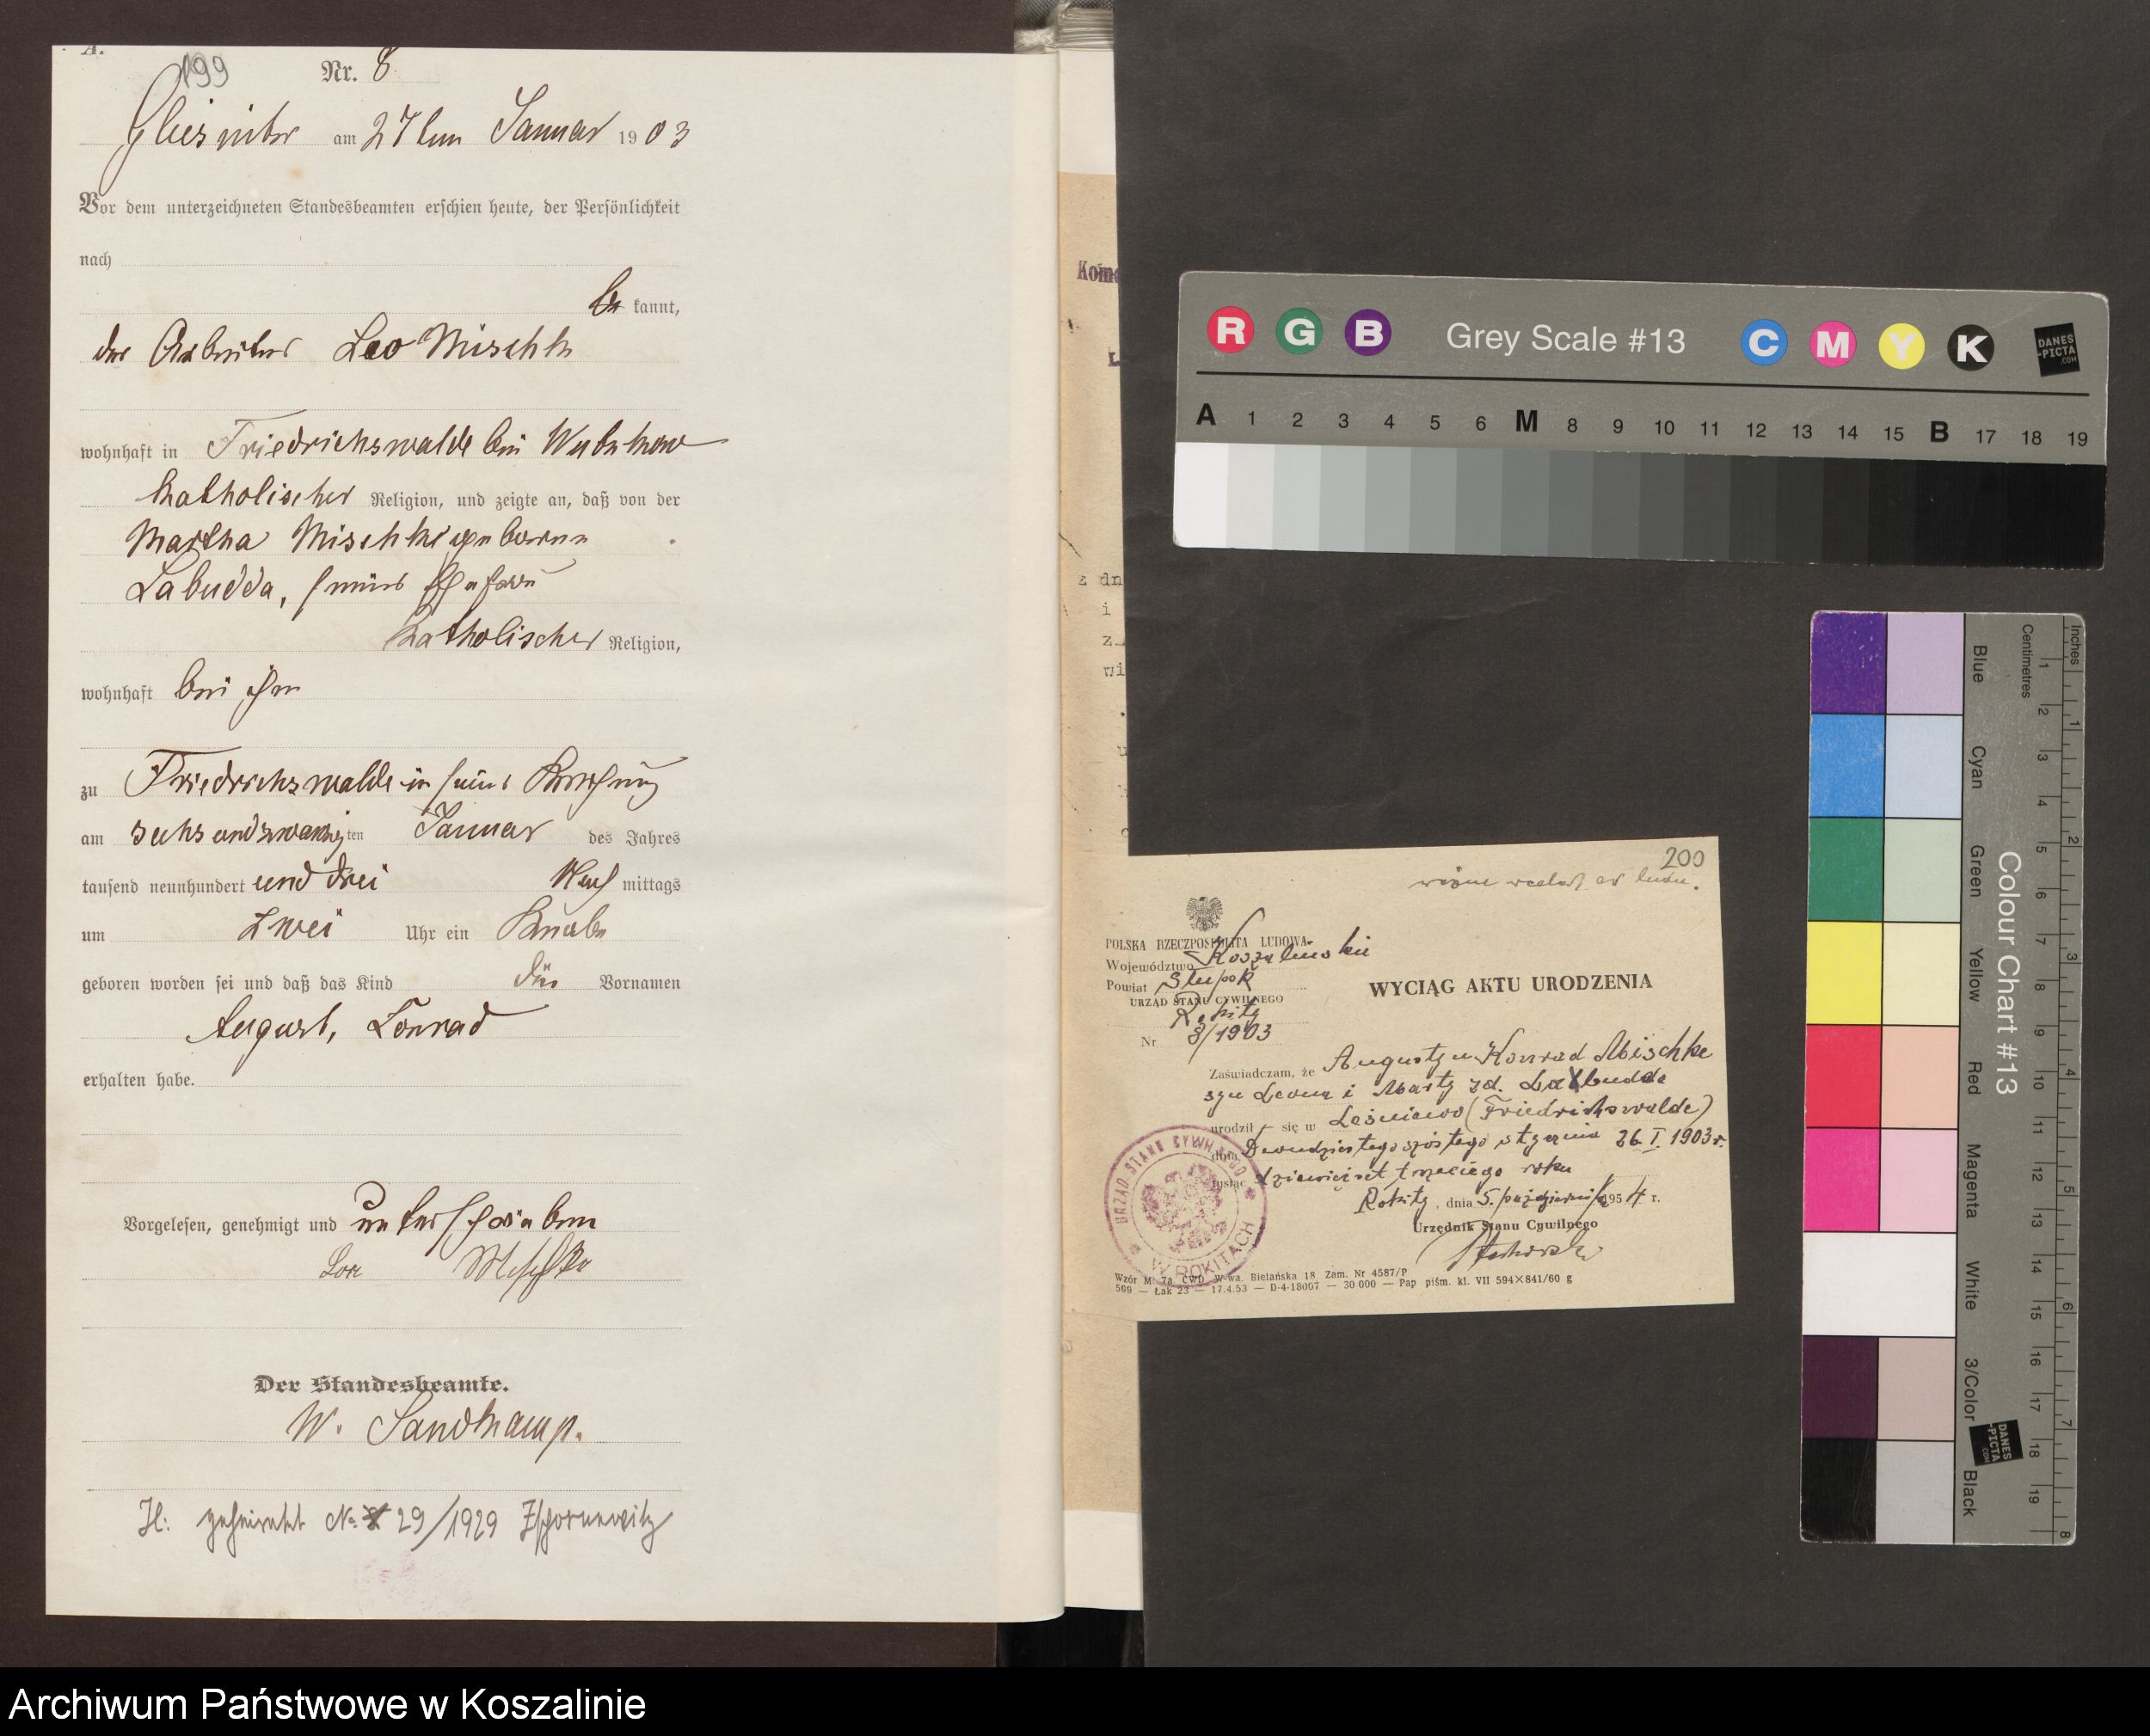 A.
199
Nr. 8
Gliesnitz am 27ten Januar 1903
Vor dem unterzeichneten Standesbeamten erschien heute, der Persönlichkeit
nach
be kannt,
der Arbeiter Leo Mischke
wohnhaft in Friedrichswalde bei Wutzkow
katholischer Religion, und zeigte an, daß von der
Martha Mischke geborene
Labudda, seiner Ehefrau
katholischer Religion,
wohnhaft bei ihm
zu Friedrichswalde in seiner Wohnung
am sechsundzwanzigten Januar des Jahres
tausend neunhundert und drei Nach mittags
um zwei Uhr ein Knabe
geboren worden sei und daß das Kind die Vornamen
August, Conrad
erhalten habe.
Vorgelesen, genehmigt und unterschrieben
Leo Mischke
Der Standesbeamte.
W. Sandkamp.
H: geheiratet Nr. 29/1929 Zschornewitz
Kom
z dn
i
z
wi
200
POLSKA RZECZPOSPOLITA LUDOWA
Województwo Koszalińskie
Powiat Słupsk
URZĄD STANU CYWILNEGO
Rokity
Nr 8/1903
WYCIĄG AKTU URODZENIA
Zaświadczam, że Augustyn Konrad Mischke
syn Leona i Marty zd. Labudda
urodził się w Leśniewo (Friedrichswalde)
dnia Dwudziestego szóstego stycznia 26.I.1903 r.
tysiąc dziewięćset trzeciego roku
Rokity, dnia 5. października 1954 r.
Urzędnik Stanu Cywilnego
URZĄD STANU CYWILNEGO
W ROKITACH
Wzór M. 7a CWD W-wa, Bielańska 18 Zam. Nr 4587/P
599 — Łak 23 — 17.4.53 — D-4-18007 — 30 000 — Pap piśm. kl. VII 594×841/60 g
R G B Grey Scale #13 C M Y K
DANES
-PICTA
.COM
A 1 2 3 4 5 6 M 8 9 10 11 12 13 14 15 B 17 18 19
Inches 1 2 3 4 5 6 7 8
Centimetres 1 2 3 4 5 6 7 8 9 10 11 12 13 14 15 16 17 18 19
Colour Chart #13
Blue Cyan Green Yellow Red Magenta White 3/Color Black
DANES
-PICTA
.COM
Archiwum Państwowe w Koszalinie